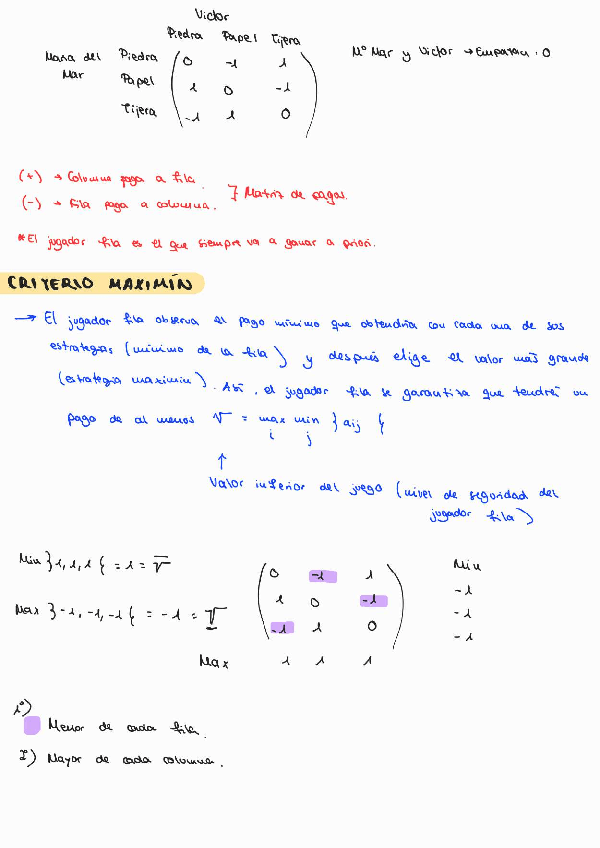 Victor
Piedra Papel Tijera
Piedra 0 -1 1
Mar Papel 1 0 -1
Tijera -1 1 0
Mar y Victor → Empatan · 0
(+) → Columna paga a fila.
(-) → Fila paga a columna.
} Matriz de pagos.
*El jugador fila es el que siempre va a ganar a priori.
CRITERIO MAXIMÍN
→ El jugador fila observa el pago mínimo que obtendría con cada una de sus
estrategias (mínimo de la fila) y después elige el valor más grande
(estrategia maximin). Así, el jugador fila se garantiza que tendrá un
pago de al menos V = max min } aij {
i j
↑
Valor inferior del juego (nivel de seguridad del
jugador fila)
Min } 1, 1, 1 { = 1 = V̅
Max } -1, -1, -1 { = -1 = V̲
Min
0 -1 1 -1
1 0 -1 -1
-1 1 0 -1
Max 1 1 1
1º)
Menor de cada fila.
2) Mayor de cada columna.